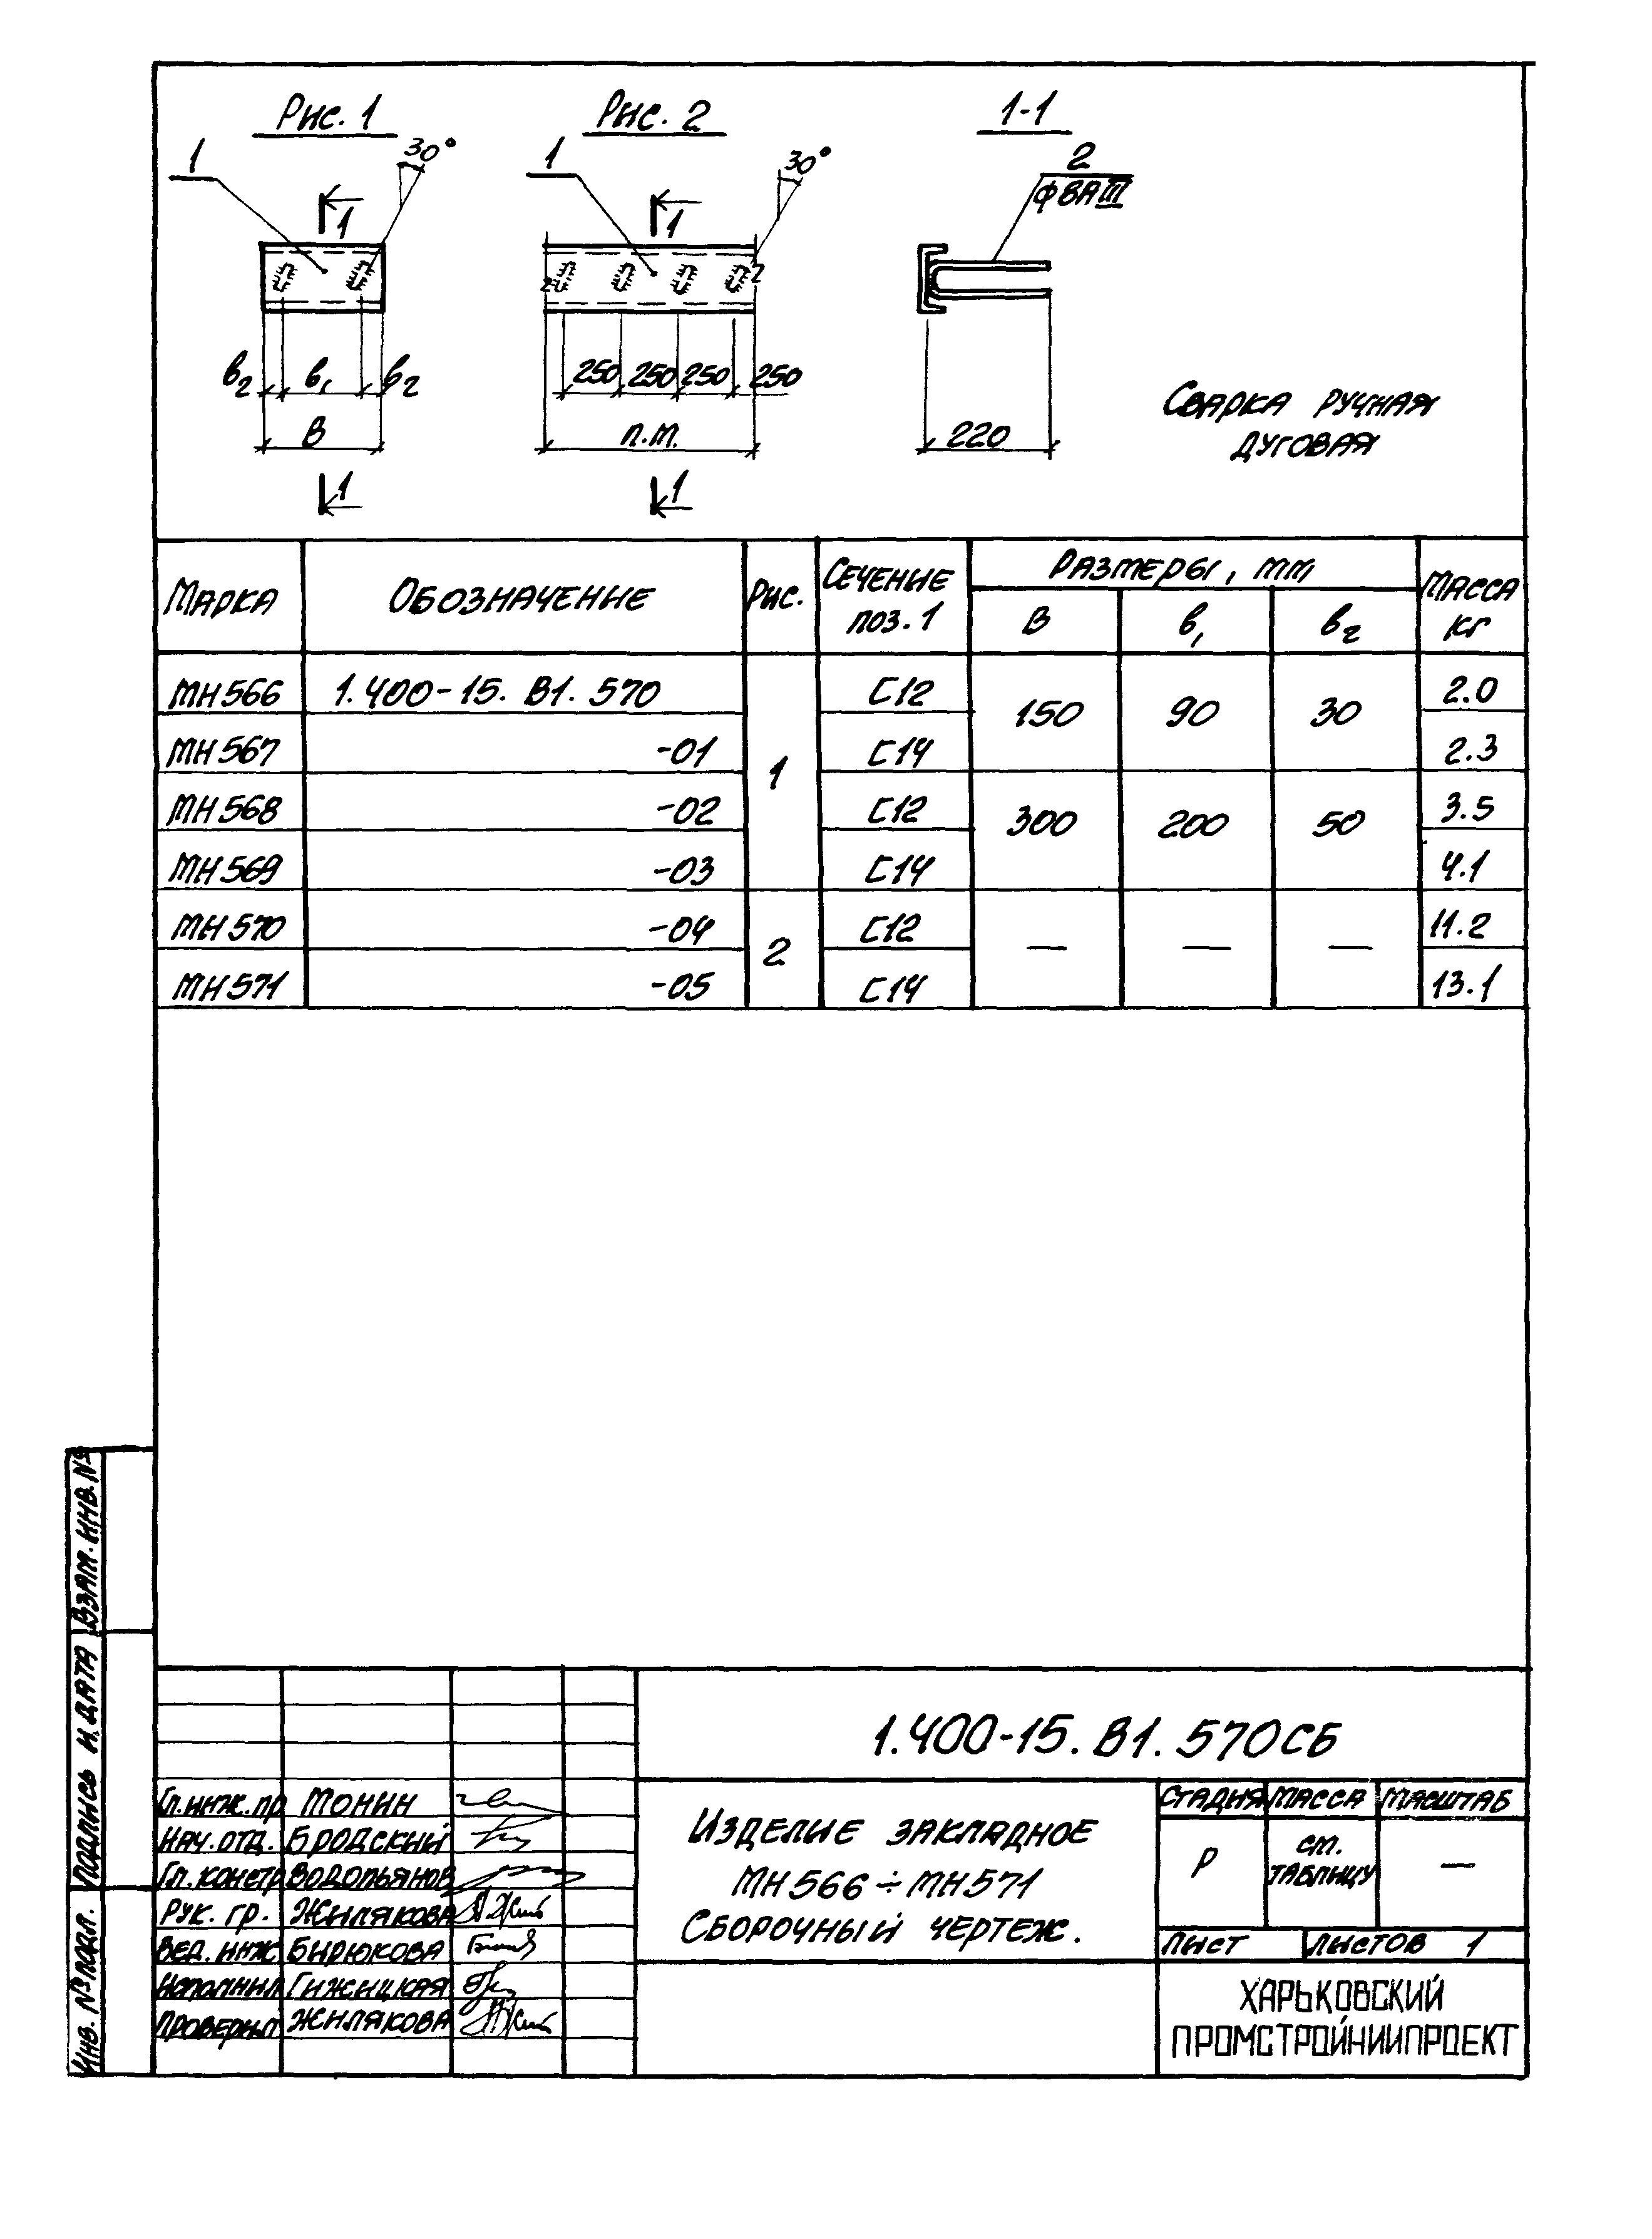 Рис. 1
Рис. 2
1-1
1
30°
1
30°
2
ф8АIII
1
1
в2 в1 в2
250 250 250 250
В
п.м.
220
Сварка ручная
дуговая
1
1
Марка Обозначение Рис. Сечение поз. 1 Размеры, мм Масса кг
В в1 в2
МН566 1.400-15. В1. 570 1 С12 150 90 30 2.0
МН567 -01 С14 2.3
МН568 -02 С12 300 200 50 3.5
МН569 -03 С14 4.1
МН570 -04 2 С12 — — — 11.2
МН571 -05 С14 13.1
Взам. инв. №
Подпись и дата
Инв. № подл.
1.400-15. В1. 570СБ
Гл. инж. пр Монин
Нач. отд. Бродский
Гл. констр Водопьянов
Рук. гр. Жилякова
Вед. инж Бирюкова
Исполнил Гижицкая
Проверил Жилякова
Изделие закладное
МН566÷МН571
Сборочный чертеж.
Стадия Масса Масштаб
Р см. таблицу —
Лист Листов 1
ХАРЬКОВСКИЙ
ПРОМСТРОЙНИИПРОЕКТ